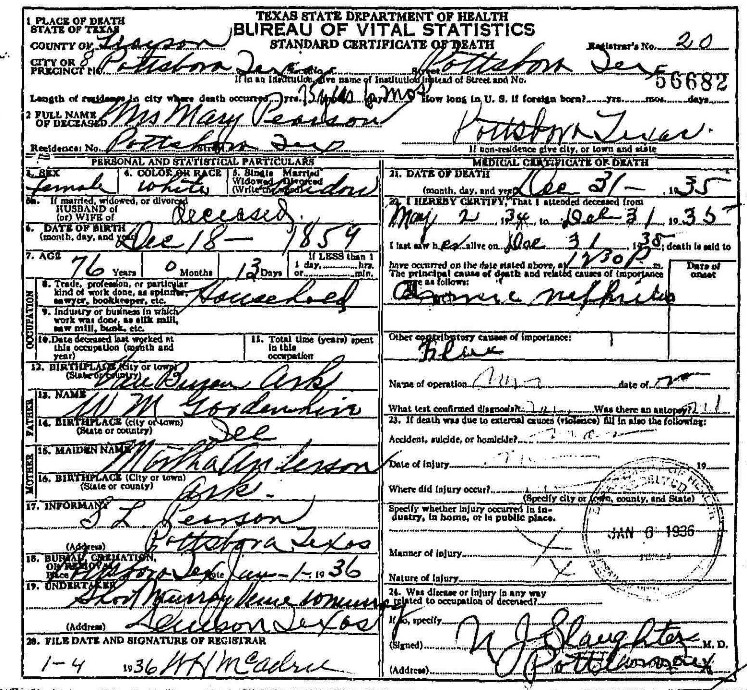 TEXAS STATE DEPARTMENT OF HEALTH
BUREAU OF VITAL STATISTICS
STANDARD CERTIFICATE OF DEATH
1 PLACE OF DEATH
STATE OF TEXAS
COUNTY OF Grayson
Registrar's No. 20
CITY OR
PRECINCT No. 8 Pottsboro Tex Street Pottsboro Tex
If in an Institution, give name of Institution instead of Street and No.
56682
Length of residence in city where death occurred yrs. mos. How long in U. S. if foreign born? yrs. mos. days
2 FULL NAME
OF DECEASED Mrs Mary Pearson
Residence: No. Pottsboro Tex Street Pottsboro Texas.
If non-residence give city, or town and state
PERSONAL AND STATISTICAL PARTICULARS
3. SEX female
4. COLOR OR RACE white
5. Single Married
Widowed Divorced
(Write the word) Widow
5a. If married, widowed, or divorced
HUSBAND OF
(or) WIFE of deceased.
6. DATE OF BIRTH
(month, day, and year) Dec 18 - 1859
7. AGE 76 Years 0 Months 13 Days
If LESS than 1
1 day, hrs.
or min.
OCCUPATION
8. Trade, profession, or particular
kind of work done, as spinner,
sawyer, bookkeeper, etc. Household
9. Industry or business in which
work was done, as silk mill,
saw mill, bank, etc.
10. Date deceased last worked at
this occupation (month and
year)
11. Total time (years) spent
in this
occupation
12. BIRTHPLACE (city or town)
(State or country) Van Buren Ark
FATHER
13. NAME W M
14. BIRTHPLACE (city or town)
State or country)
MOTHER
15. MAIDEN NAME Martha Anderson
16. BIRTHPLACE (City or town)
(State or county) Ark.
17. INFORMANT S L Pearson
(Address) Pottsboro Texas
18. BURIAL, CREMATION,
OR REMOVAL
Place Pottsboro Tex Date Jan - 1 - 1936
19. UNDERTAKER Short Murray
(Address) Denison Texas
20. FILE DATE AND SIGNATURE OF REGISTRAR
1-4 1936
MEDICAL CERTIFICATE OF DEATH
21. DATE OF DEATH
(month, day, and year) Dec 31 - 1935
22. I HEREBY CERTIFY, That I attended deceased from
May 2 1934 to Dec 31 1935
I last saw her alive on Dec 31 1935; death is said to
have occurred on the date stated above, at 1230 P m.
The principal cause of death and related causes of importance
were as follows:
Date of
onset
Chronic nephritis
Other contributory causes of importance:
Name of operation date of
What test confirmed diagnosis? Was there an autopsy?
23. If death was due to external causes (violence) fill in also the following:
Accident, suicide, or homicide?
Date of injury 19
Where did injury occur?
(Specify city or town, county, and State)
Specify whether injury occurred in in-
dustry, in home, or in public place.
JAN 6 1936
Manner of injury
Nature of injury
24. Was disease or injury in any way
related to occupation of deceased?
If so, specify
(Signed) N J Slaughter M. D.
(Address)